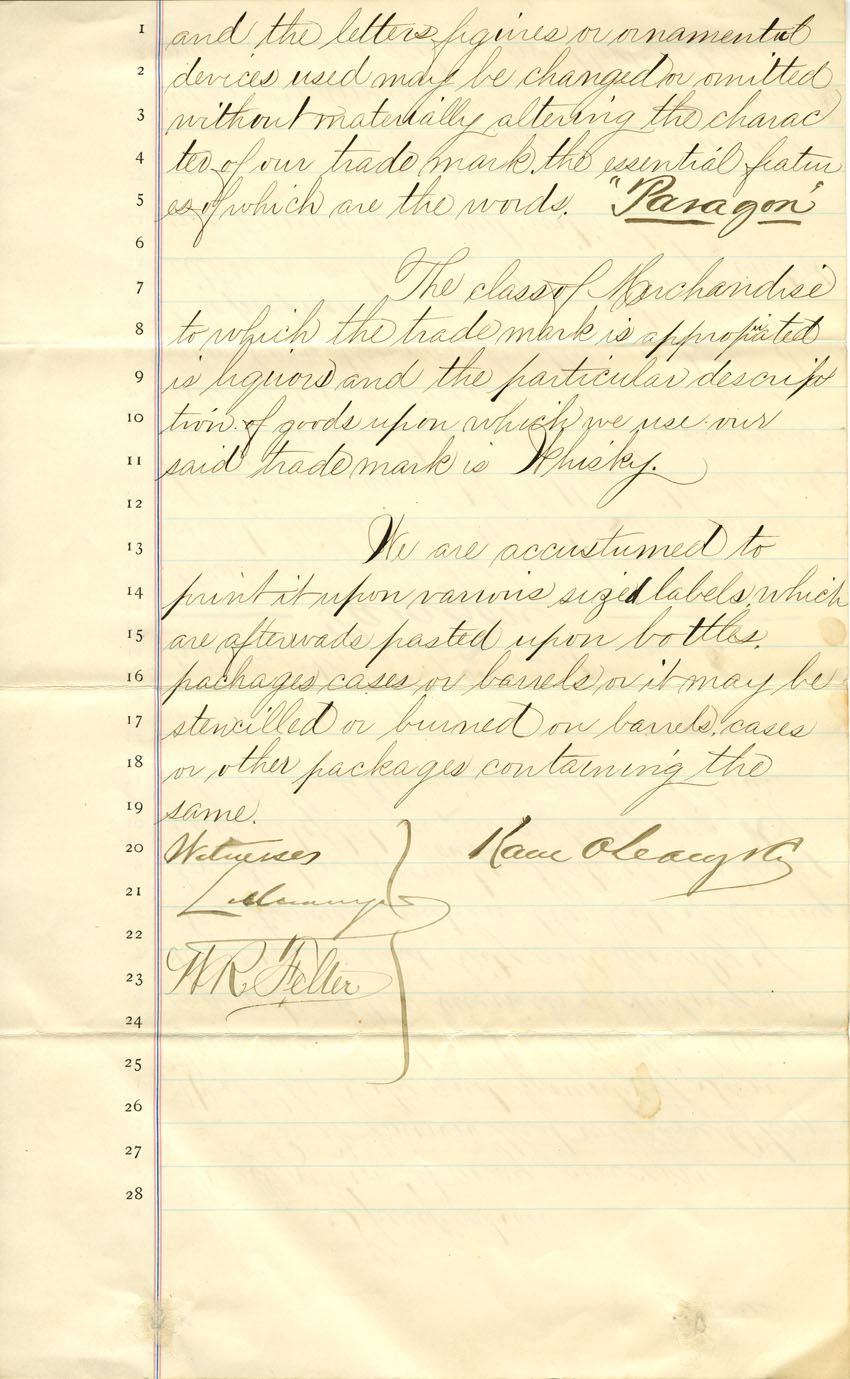 1 and the letters, figures or ornamental
2 devices used may be changed or omitted
3 without materially altering the charac
4 ter of our trade mark. the essential featur
5 es of which are the words. "Paragon"
6
7 The class of Merchandise
8 to which the trade mark is appropriated
9 is liquors and the particular descript
10 tion of goods upon which we use our
11 said trade mark is Whisky.
12
13 We are accustumed to
14 print it upon various sized labels, which
15 are afterwads pasted upon bottles,
16 packages cases, or barrels or it may be
17 stencilled or burned on barrels, cases
18 or other packages containing the
19 same.
20 Witnesses Kane O'Leary & Co
21
22
23 H R Feller
24
25
26
27
28